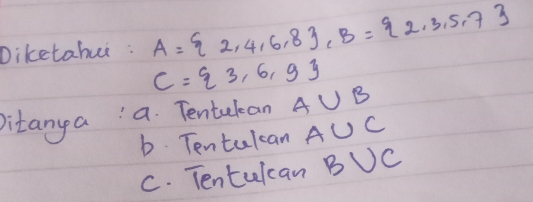 Diketahui : A = { 2,4,6,8 }, B = { 2,3,5,7 }
C = { 3, 6, 9 }
Ditanya : a. Tentukan A ∪ B
b. Tentukan A ∪ C
c. Tentukan B ∪ C